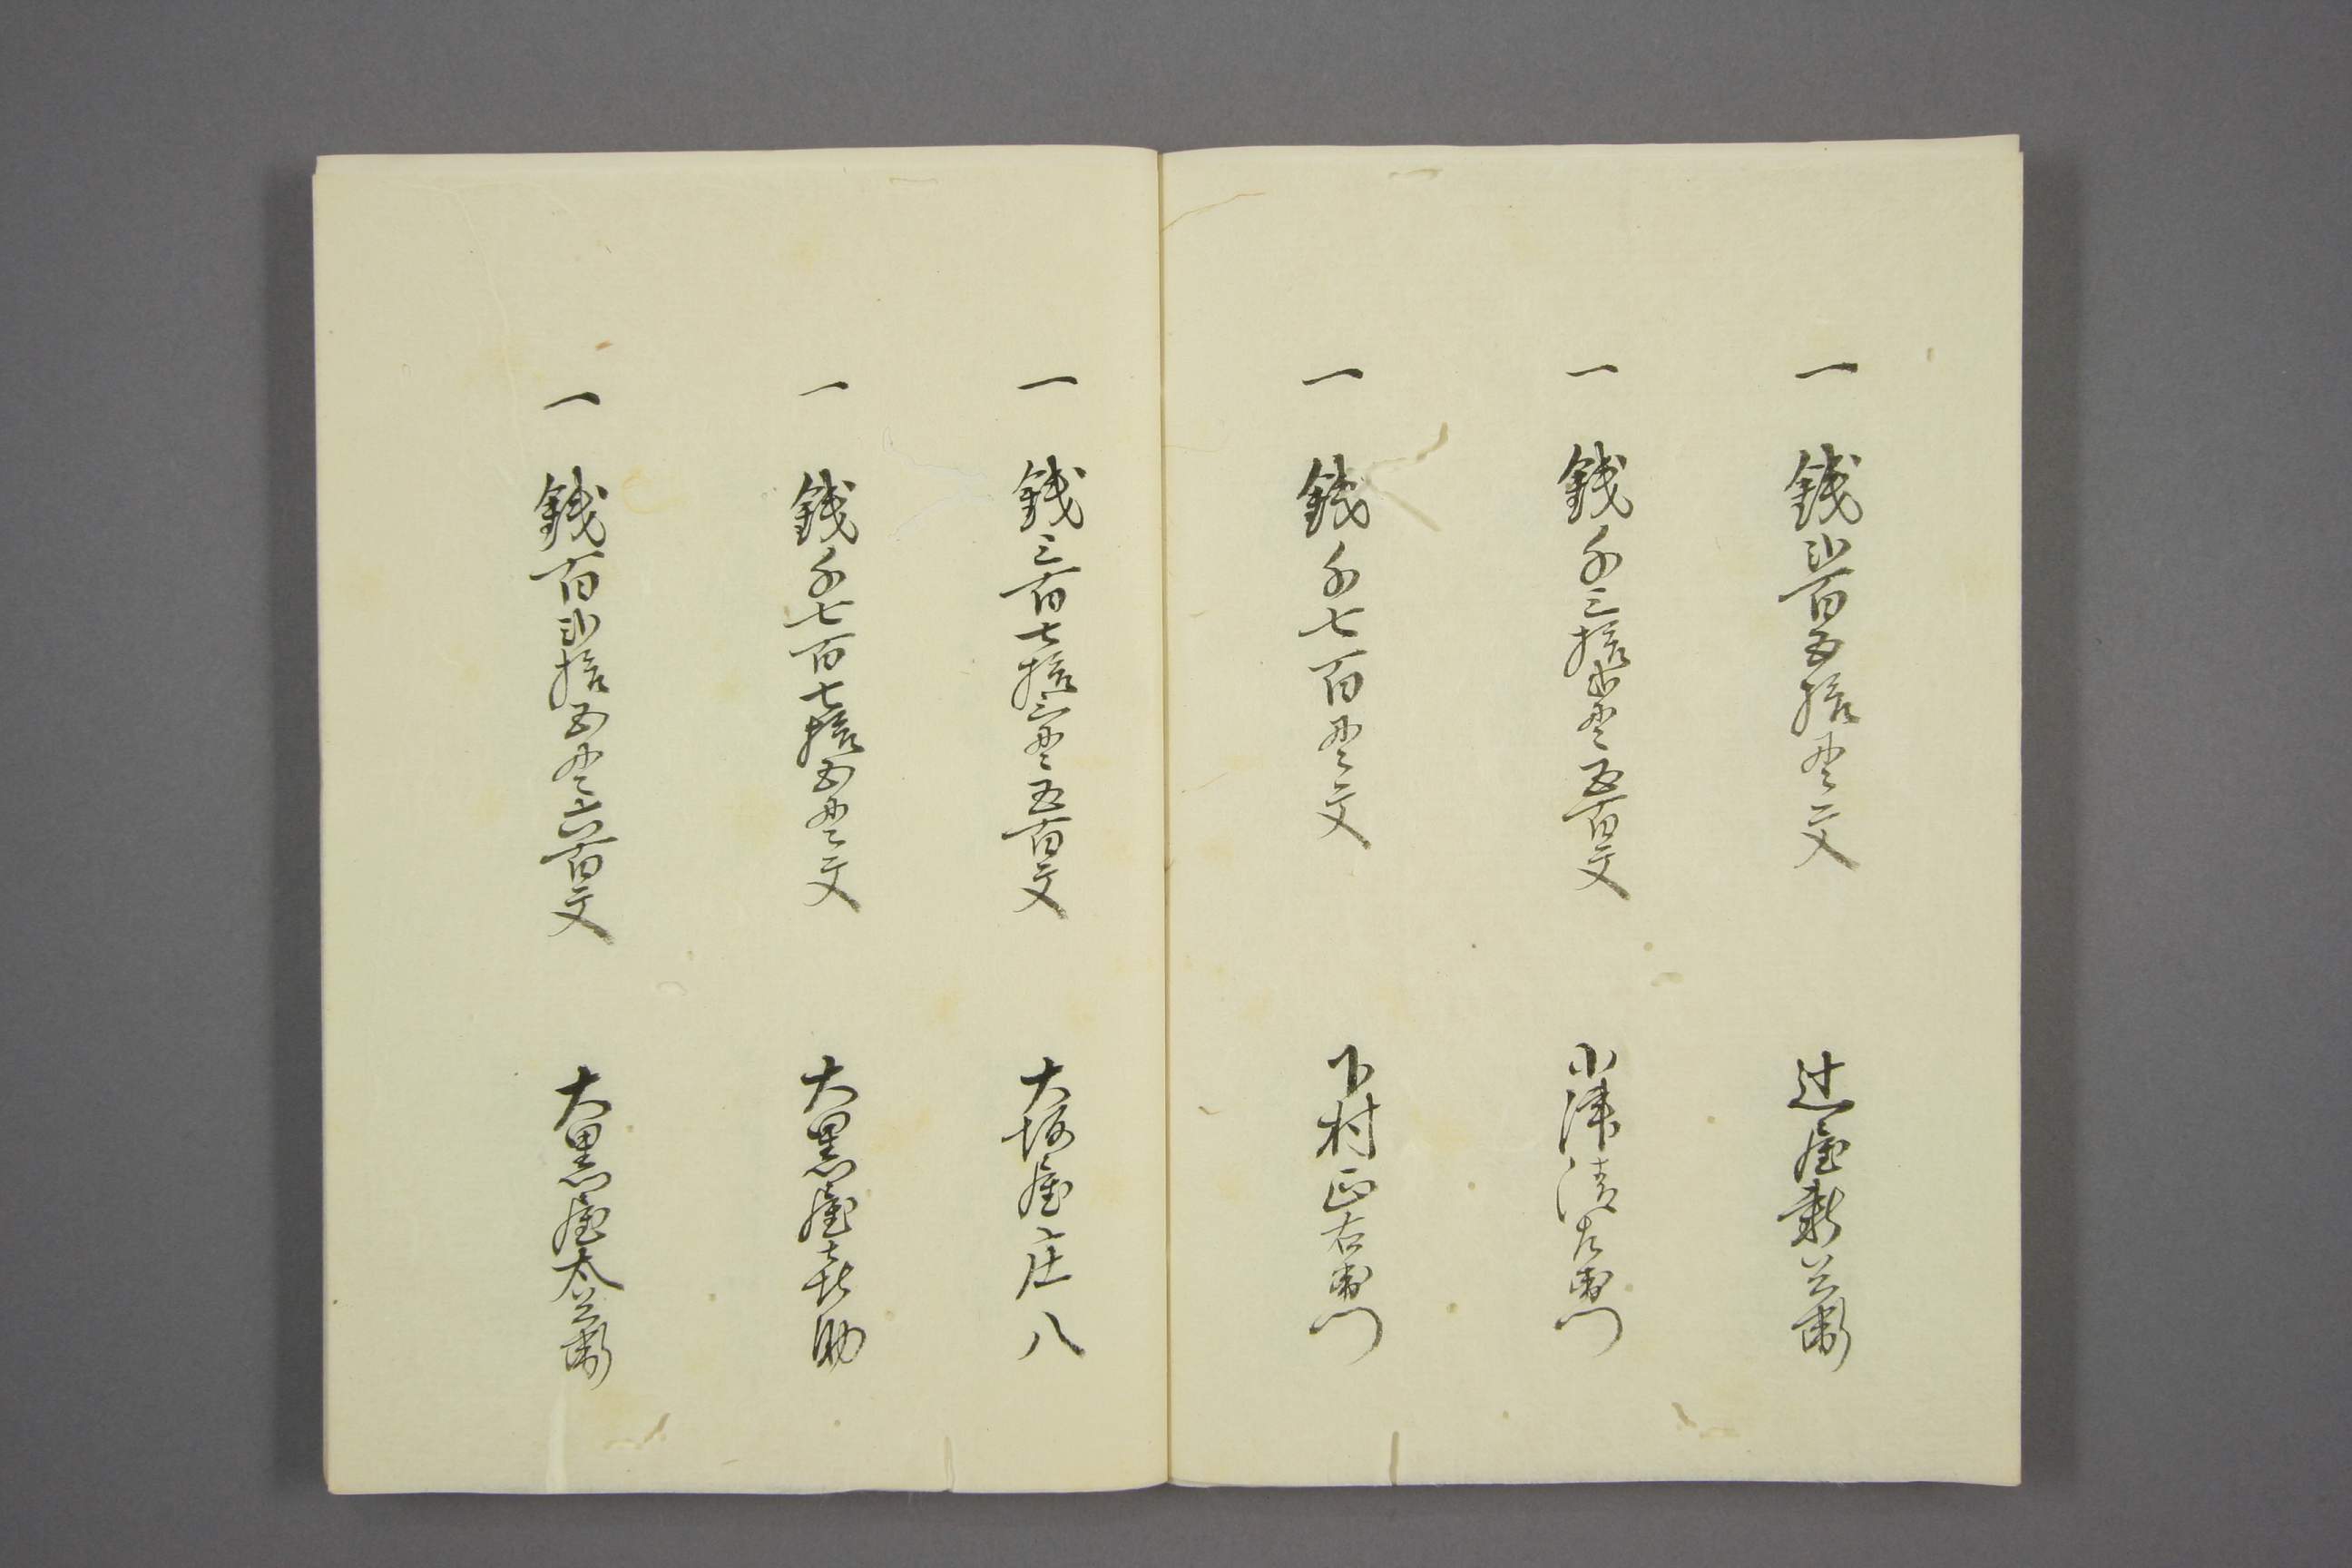 一 銭弐百五拾貫文 辻屋新兵衛
一 銭千三拾弐貫五百文 小津清左衛門
一 銭千七百貫文 下村正右衛門
一 銭三百七拾三貫五百文 大坂屋庄八
一 銭千七百七拾五貫文 大黒屋喜助
一 銭百弐拾五貫六百文 大黒屋太兵衛